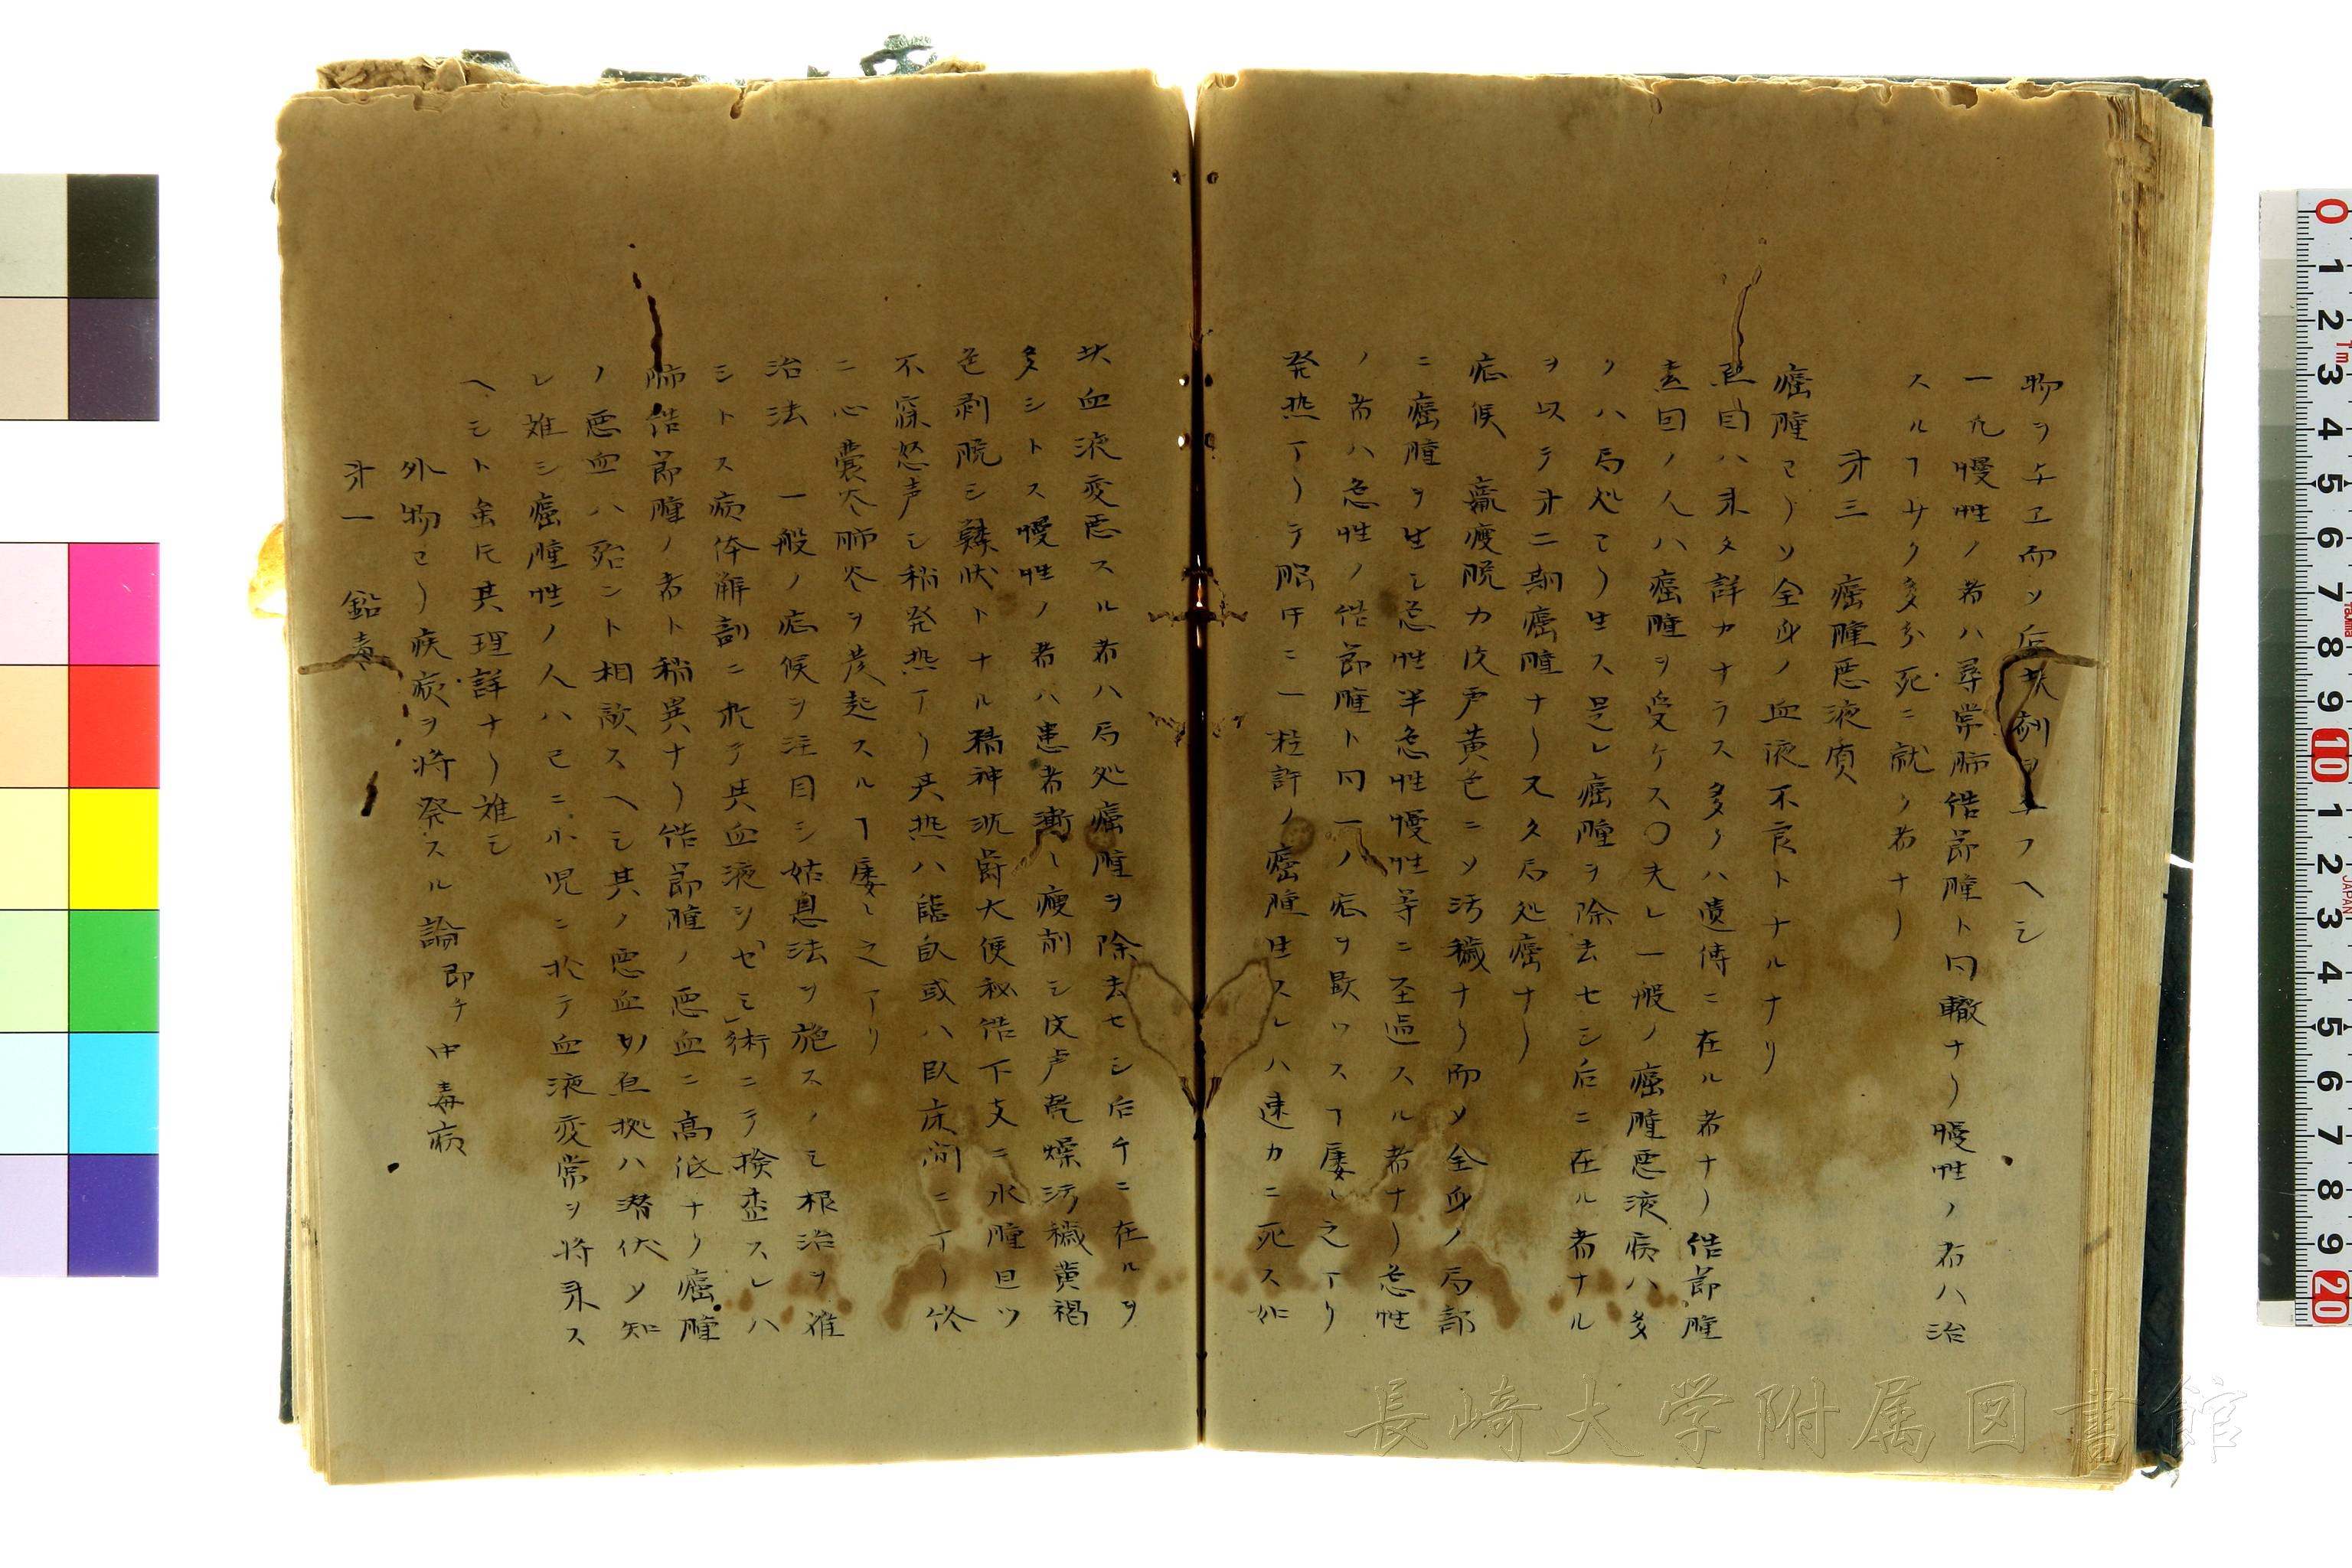 物ヲ与エ而ソ后鉄剤ヲ与フヘシ
一凡慢性ノ者ハ尋常肺結節腫ト同轍ナリ慢性ノ者ハ治
スルヿ少ク多分死ニ就ク者ナリ
才三 癌腫悪液質
癌腫ヨリソ全身ノ血液不良トナルナリ
原因ハ未タ詳カナラス多クハ遺傳ニ在ル者ナリ結節腫
素因ノ人ハ癌腫ヲ受ケス〇夫レ一般ノ癌腫悪液病ハ多
クハ局処ヨリ生ス是レ癌腫ヲ除去セシ后ニ在ル者ナル
ヲ以テ才二期癌腫ナリ又久局処癌ナリ
症候 羸痩脱力皮膚黄色ニソ汚穢ナリ而ソ全身ノ局部
ニ癌腫ヲ生シ急性半急性慢性等ニ至過スル者ナリ急性
ノ者ハ急性ノ結節腫ト同一ノ症ヲ顕ワスヿ屡〻之アリ
発熱アリテ脳中ニ一粒許ノ癌腫生スレハ速カニ死ス如
此血液変悪スル者ハ局処癌腫ヲ除去セシ后チニ在ルヲ
多シトス慢性ノ者ハ患者漸〻痩削シ皮膚乾燥汚穢黄褐
色剥脱シ鱗状トナル精神沈欝大便秘結下支ニ水腫且ツ
不寐怒声シ稍発熱アリ其熱ハ臨臥或ハ臥床間ニアリ終
ニ心嚢炎肺炎ヲ発起スルヿ屡〻之アリ
治法 一般ノ症候ヲ注目シ姑息法ヲ施スノミ根治ヲ難
シトス病体解剖ニ於テ其血液ヲゼミ術ニテ検査スレハ
肺結節腫ノ者ト稍異ナリ結節腫ノ悪血ニ高低ナク癌腫
ノ悪血ハ殆ント相敵スヘシ其ノ悪血ノ原拠ハ潜伏ソ知
レ難シ癌腫性ノ人ハ已ニ小児ニ於テ血液変常ヲ将来ス
ヘシト雖𪜈其理詳ナリ難シ
外物ヨリ疾病ヲ将発スル論 即チ中毒病
才一 鉛毒
長崎大学附属図書館